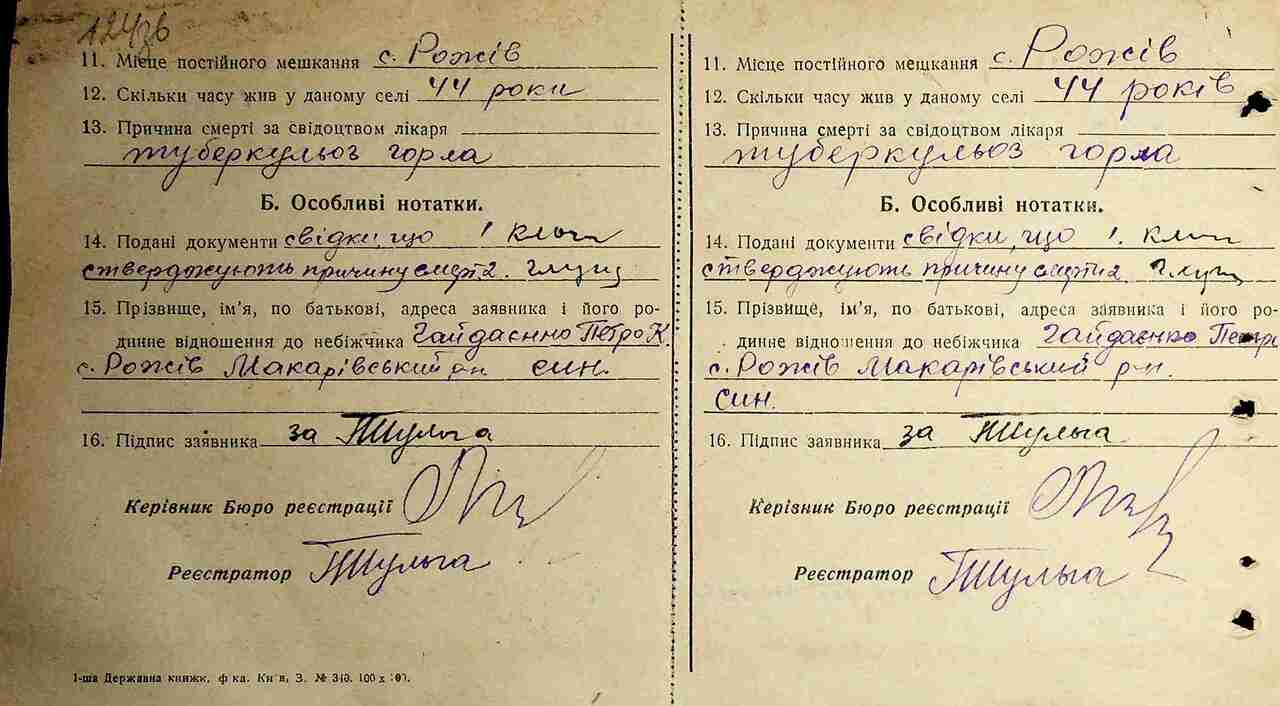 11. Місце постійного мешкання с. Рожів
12. Скільки часу жив у даному селі 44 роки
13. Причина смерті за свідоцтвом лікаря
туберкульоз горла
Б. Особливі нотатки.
14. Подані документи свідки, що
стверджують причину смерти.
15. Прізвище, ім’я, по батькові, адреса заявника і його ро-
динне відношення до небіжчика Гайдаєнко Петро К.
с. Рожів Макарівський рн син.
16. Підпис заявника за Шульга
Керівник Бюро реєстрації
Реєстратор Шульга
1-ша Державна книжк. ф-ка. Київ, З. № 340. 100 х 100.
11. Місце постійного мешкання с. Рожів
12. Скільки часу жив у даному селі 44 років
13. Причина смерті за свідоцтвом лікаря
туберкульоз горла
Б. Особливі нотатки.
14. Подані документи свідки, що
стверджують причину смерти
15. Прізвище, ім’я, по батькові, адреса заявника і його ро-
динне відношення до небіжчика Гайдаєнко Петро
с. Рожів Макарівський р-н.
син.
16. Підпис заявника за Шульга
Керівник Бюро реєстрації
Реєстратор Шульга